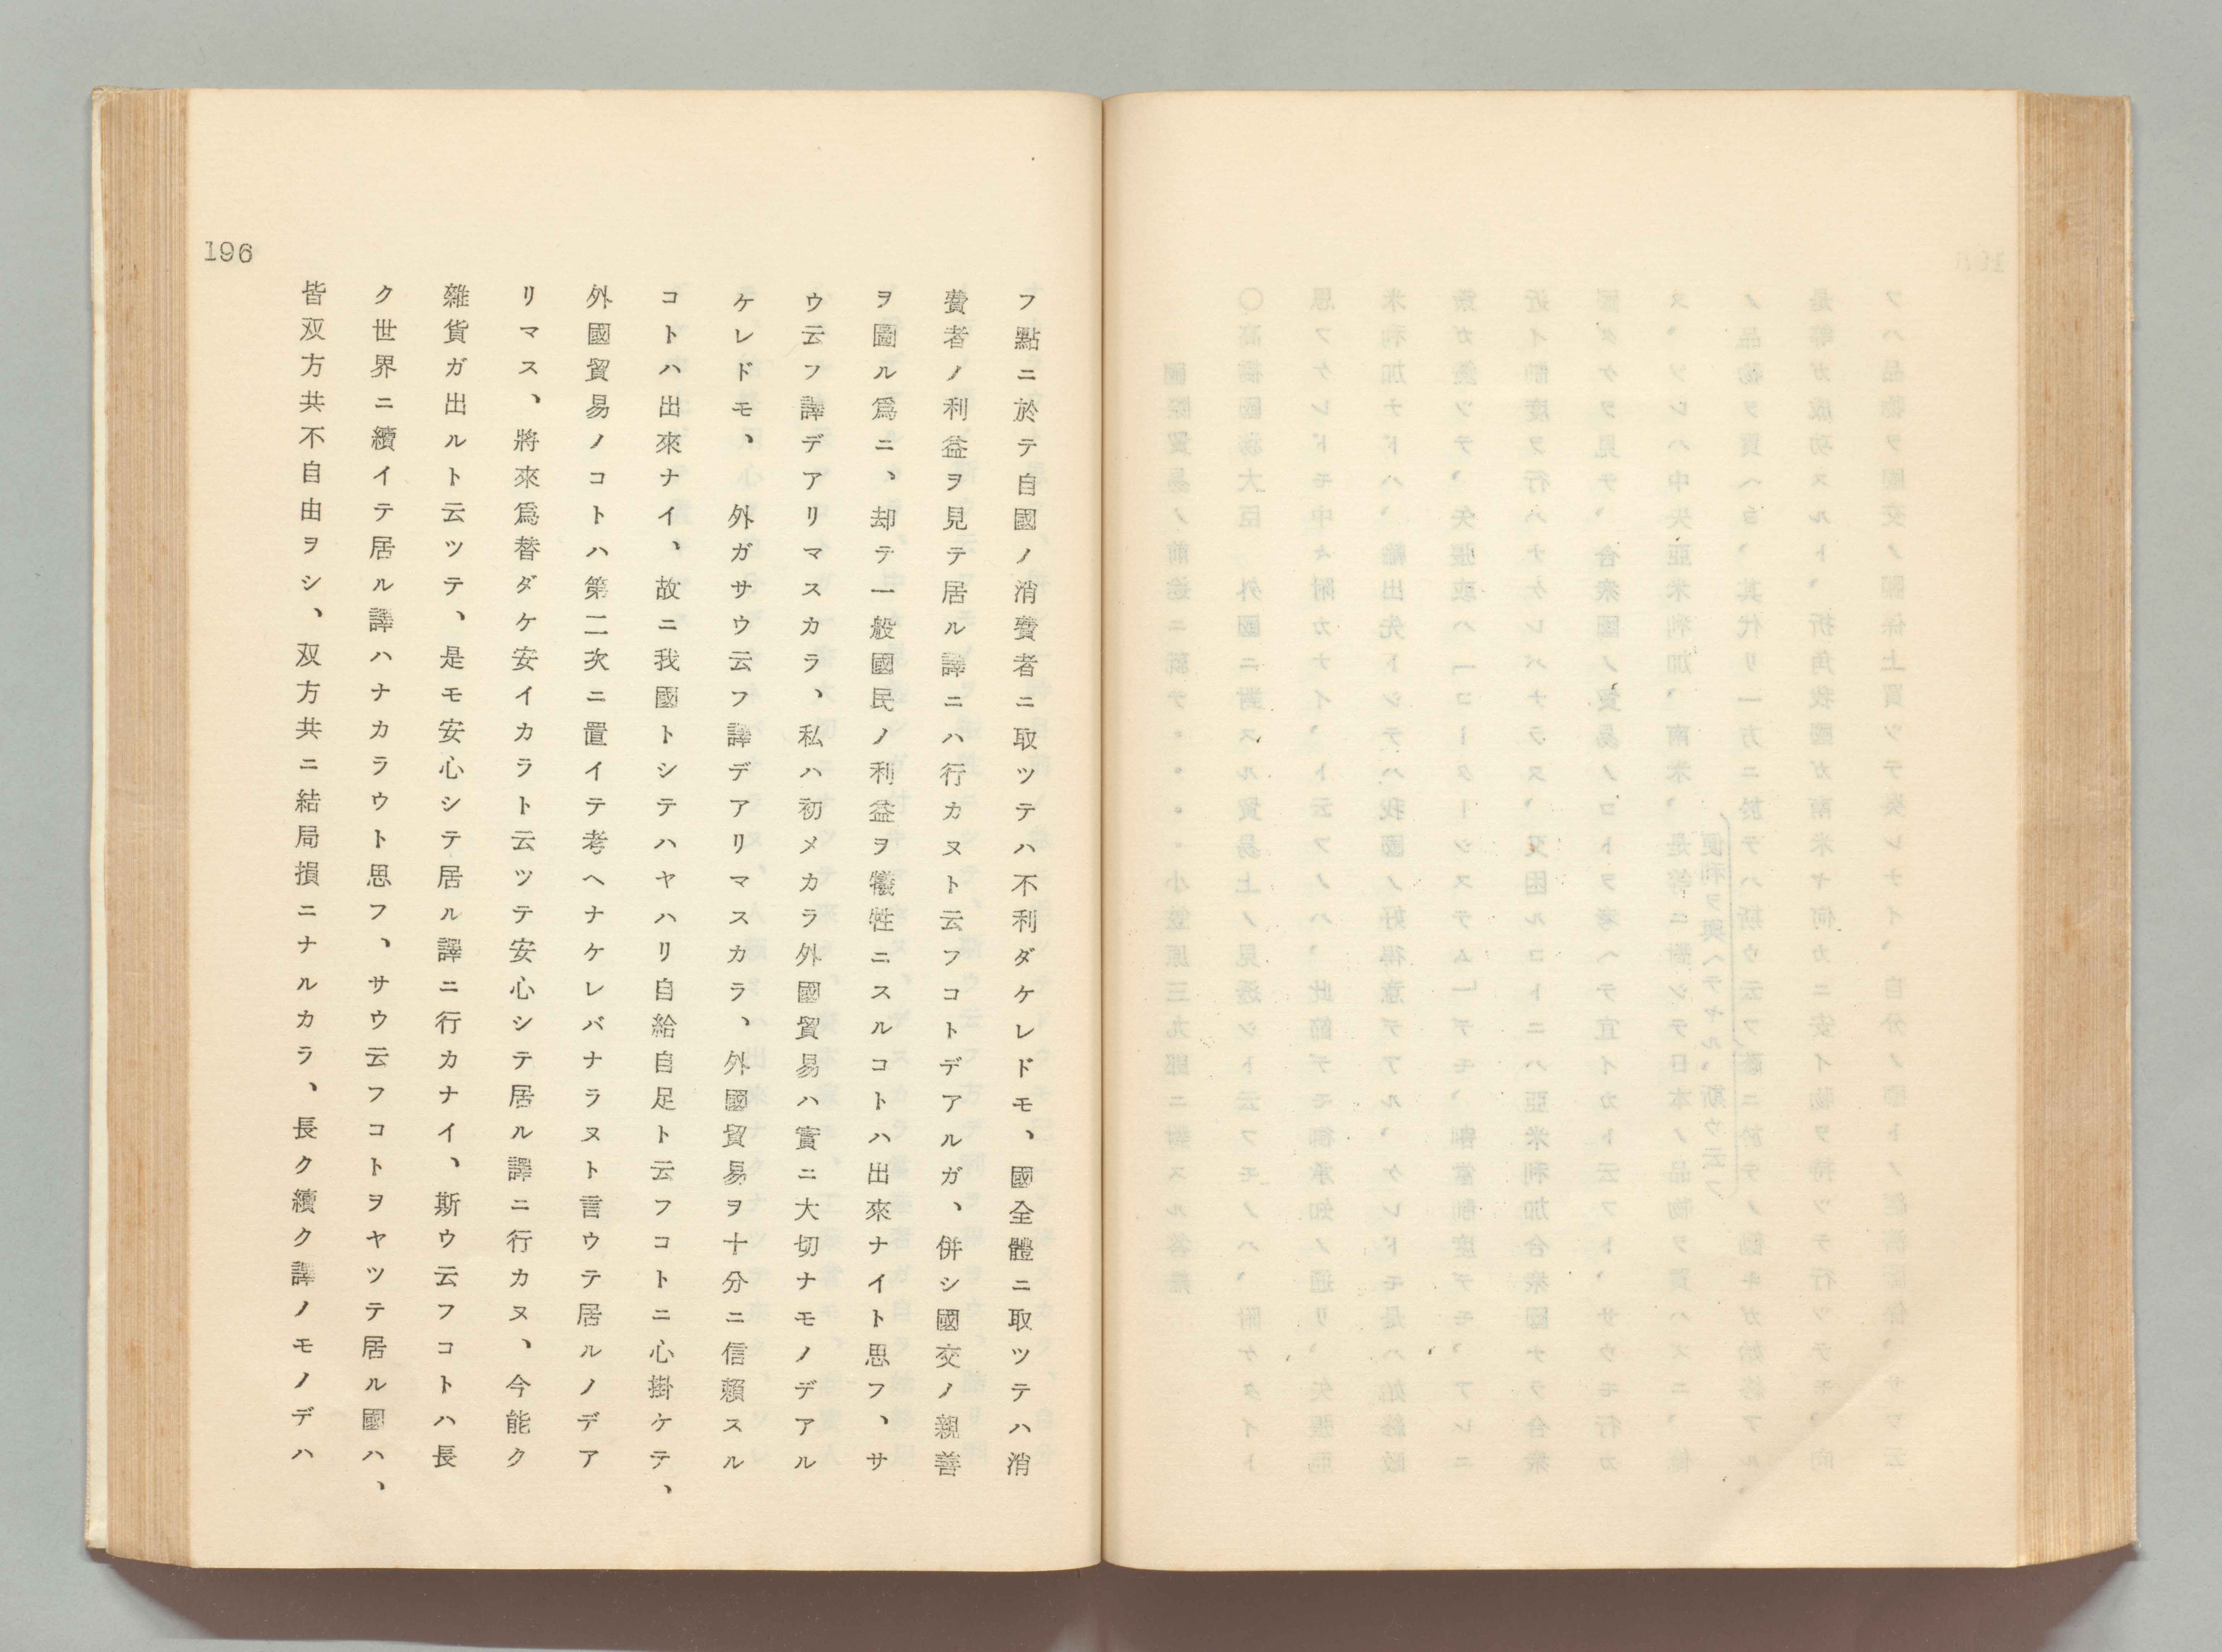 196
フ點ニ於テ自國ノ消費者ニ取ツテハ不利ダケレドモ、國全體ニ取ツテハ消
費者ノ利益ヲ見テ居ル譯ニハ行カヌト云フコトデアルガ、併シ國交ノ親善
ヲ圖ル爲ニ、却テ一般國民ノ利益ヲ犧牲ニスルコトハ出來ナイト思フ、サ
ウ云フ譯デアリマスカラ、私ハ初メカラ外國貿易ハ實ニ大切ナモノデアル
ケレドモ、外ガサウ云フ譯デアリマスカラ、外國貿易ヲ十分ニ信賴スル
コトハ出來ナイ、故ニ我國トシテハヤハリ自給自足ト云フコトニ心掛ケテ、
外國貿易ノコトハ第二次ニ置イテ考ヘナケレバナラヌト言ウテ居ルノデア
リマス、將來爲替ダケ安イカラト云ツテ安心シテ居ル譯ニ行カヌ、今能ク
雜貨ガ出ルト云ツテ、是モ安心シテ居ル譯ニ行カナイ、斯ウ云フコトハ長
ク世界ニ續イテ居ル譯ハナカラウト思フ、サウ云フコトヲヤツテ居ル國ハ、
皆双方共不自由ヲシ、双方共ニ結局損ニナルカラ、長ク續ク譯ノモノデハ